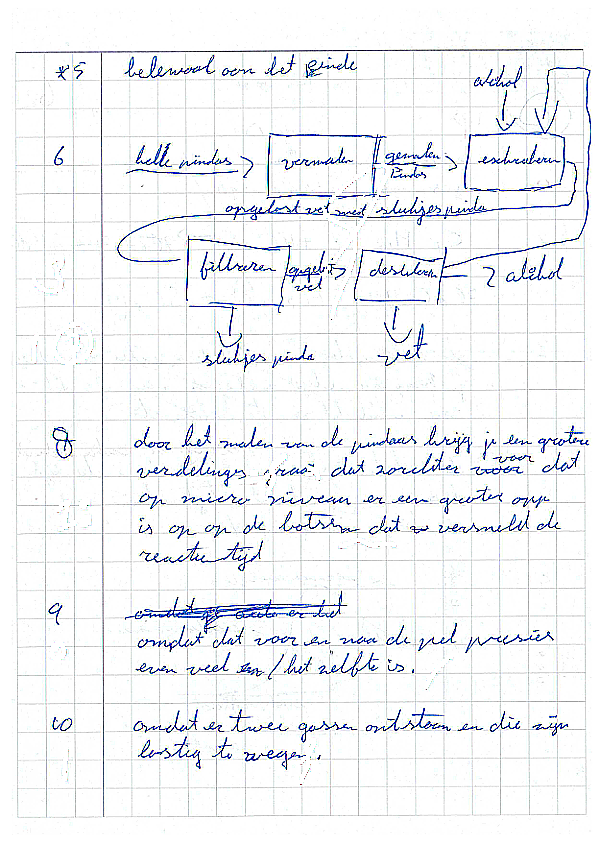 *5 belemaal aan het einde
alcohol
6 hele pindas vermalen gemalen
pindas
opgelost vet met stukjes pinda
filtreren opgelost
vet
alcohol
stukjes pinda vet
8 door het malen van de pindaas krijg je een grotere
verdelinges graat dat zorchter voor dat
op micro niveau er een groter opp
is op op de botsen dat versneld de
reactie tijd
9
omdat dat voor en naa de pijl presies
even veel / het zelfte is.
10 omdat er twee gassen ontstaan en die zijn
lastig te wegen.